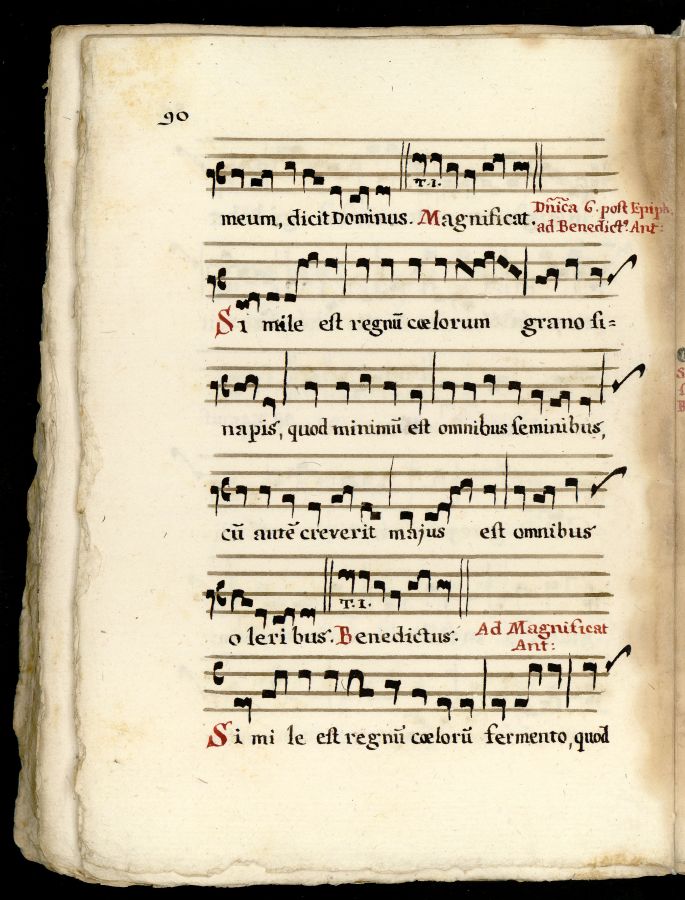 90
T.I.
meum, dicit Dominus. Magnificat.
Dñica 6. post Epiph.
ad Benedict⁹. Ant:
Si mile est regnũ cœlorum grano si=
napis, quod minimũ est omnibus seminibus,
cũ autẽ creverit majus est omnibus
T.I.
o leri bus. Benedictus.
Ad Magnificat
Ant:
Si mi le est regnũ cœlorũ fermento, quod